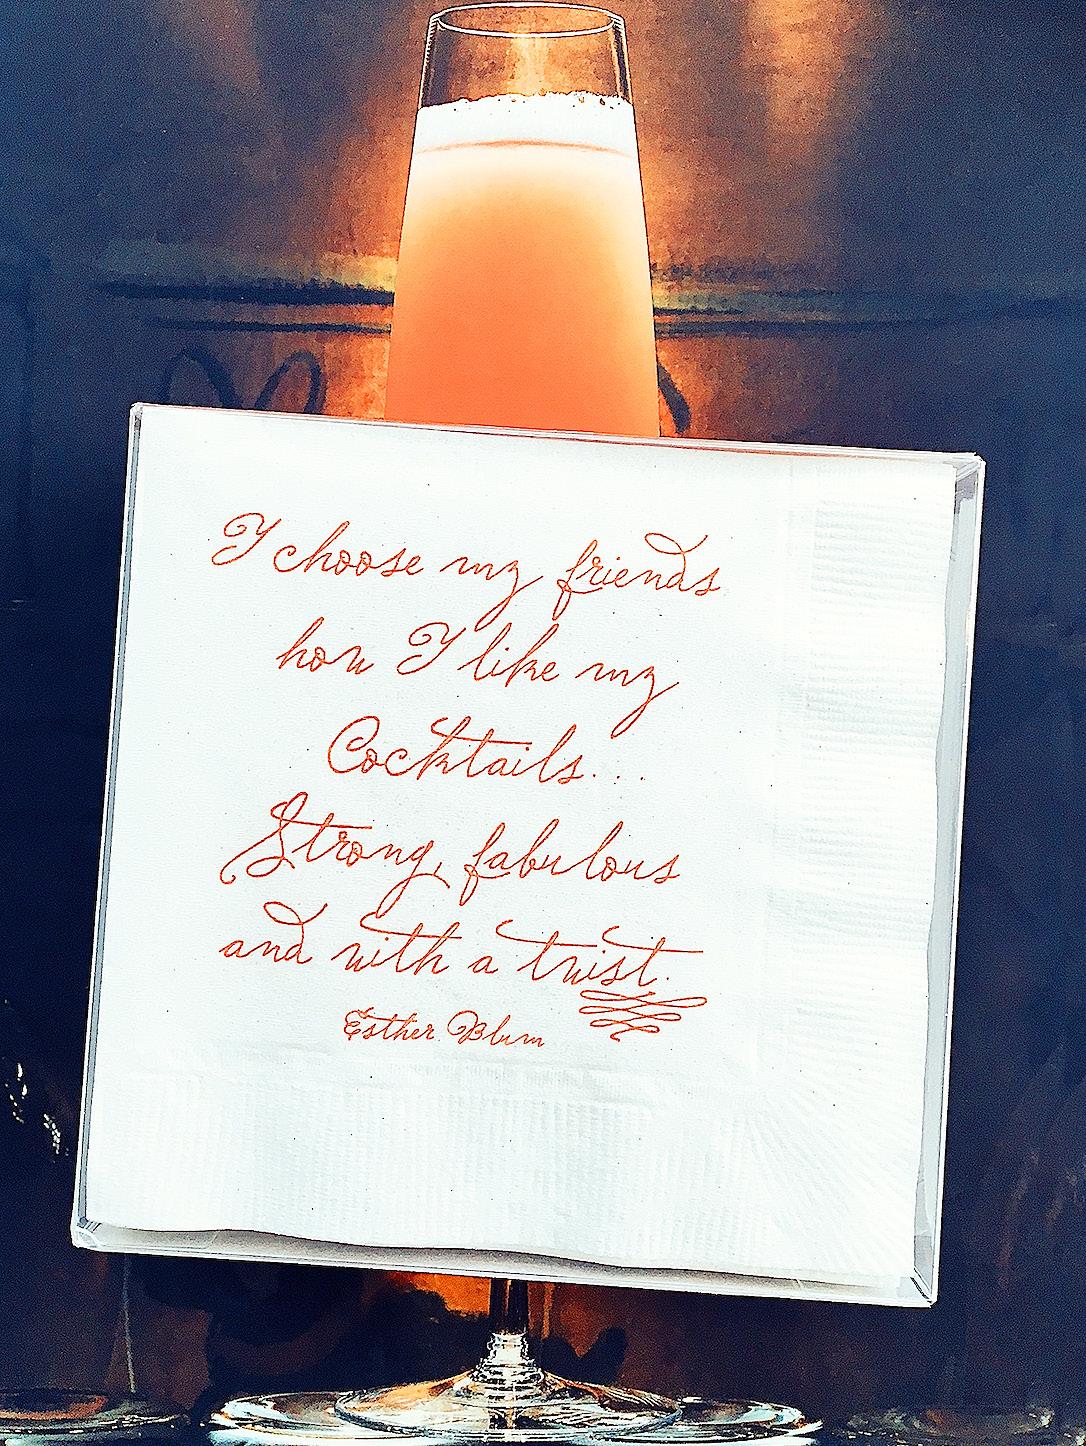 I choose my friends
how I like my
Cocktails...
Strong, fabulous
and with a twist.
Esther Blum